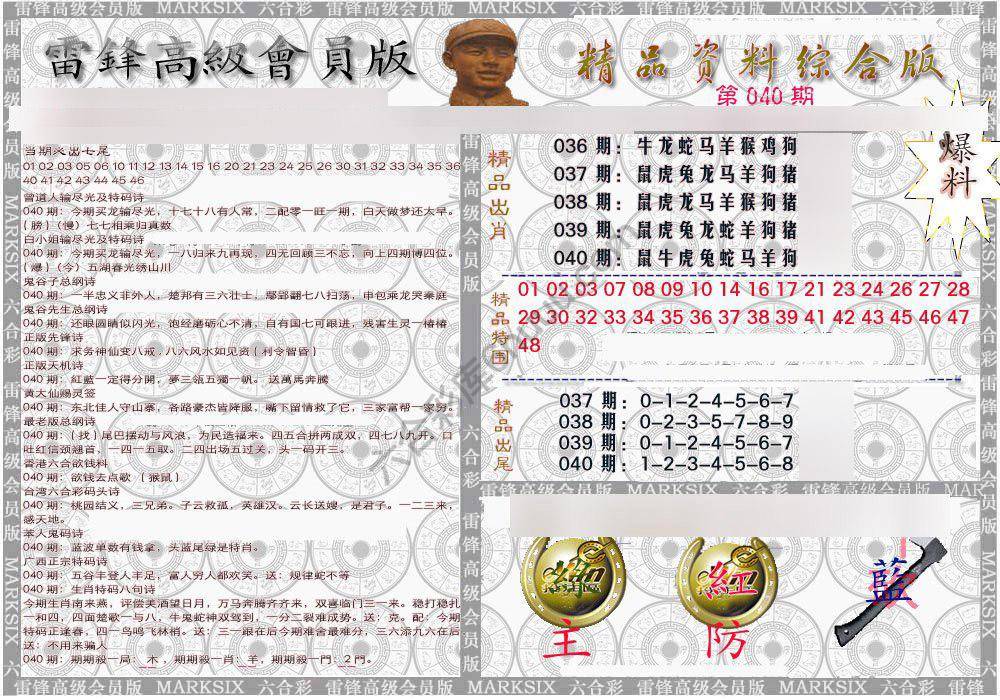 雷锋高级会员版 MARKSIX 六合彩 雷锋高级会员版 MARKSIX 六合彩 雷锋高级会员版 MARKSIX 六合彩 雷锋
雷鋒高級會員版
精品资料综合版
第 040 期
爆料
当期
出七尾
01 02 03 05 06 10 11 12 13 14 15 16 20 21 23 24 25 26 30 31 32 33 34 35 36
40 41 42 43 44 45 46
曾道人输尽光及特码诗
040 期：今期买龙输尽光，十七十八有人常，二配零一旺一期，白天做梦还太早。
{ 膀 }（慢）七七相乘归真数
白小姐输尽光及特码诗
040 期：今期买龙输尽光，一八归来九再现，四无回顾三不忘，向上四期博四位。
{ 爆 }（今）五湖春光绣山川
鬼谷子总纲诗
040 期：一半忠义非外人，楚邦有三六壮士，鄢郢翻七八扫荡，申包乘龙哭秦庭
鬼谷先生总纲诗
040 期：还眼圆睛似闪光，饱经磨砺心不清，自有国七可跟进，残害生灵一樁樁
正版先锋诗
040 期：宋务神仙变八戒，八六风水如见资 { 利令智昏 }
正版天机诗
040 期：紅藍一定得分開，夢三瓴五獨一帆。 送萬馬奔騰
黄大仙赐灵签
040 期：东北佳人守山寨，各路豪杰皆降服，嘴下留情救了它，三家富帮一家穷。
最老版总纲诗
040 期：{ 找 } 尾巴摆动与风浪，为民造福来。四五合拼两成双，四七八九开。口
吐红信颈翘首，一四一五取。二四出场五过关，头一码开三。
香港六合欲钱料
040 期：欲钱去点歌 （猴鼠）
台湾六合彩码头诗
040 期：桃园结义，三兄弟。子云救孤，英雄汉。云长送嫂，是君子。一二三来，
感天地。
笨人鬼码诗
040 期：蓝波单数有钱拿，头蓝尾绿是特肖。
广西正宗特码诗
040 期：五谷丰登人丰足，富人穷人都欢笑。送：规律蛇不等
040 期：生肖特码八句诗
今期生肖南来燕，评偿美酒望日月，万马奔腾齐齐来，双喜临门三一来。稳打稳扎
一和四，四面楚歌一与八，牛鬼蛇神双驾到，一分二裂难成势。送：克。配：今期
特码正逢春，四一鸟鸣飞林梢。送：三一跟在后今期难舍最难分，三六添九六在后
送：不用来骗人
040 期：期期殺一局：木，期期殺一肖：羊，期期殺一門：2 門。
精品出肖
036 期：牛龙蛇马羊猴鸡狗
037 期：鼠虎兔龙马羊狗猪
038 期：鼠虎龙马羊猴狗猪
039 期：鼠虎兔龙蛇羊狗猪
040 期：鼠牛虎兔蛇马羊狗
精品特围
01 02 03 07 08 09 10 14 16 17 21 23 24 26 27 28
29 30 32 33 34 35 36 37 38 39 41 42 43 45 46 47
48
精品出尾
037 期：0-1-2-4-5-6-7
038 期：0-2-3-5-7-8-9
039 期：0-1-2-4-5-6-7
040 期：1-2-3-4-5-6-8
雷锋高级会员版 MARKSIX 六合彩 雷锋高级会员版
紅
藍
主
防
雷锋高级会员版 MARKSIX 六合彩 雷锋高级会员版 MARKSIX 六合彩 雷锋高级会员版 MARKSIX 六合彩 雷锋